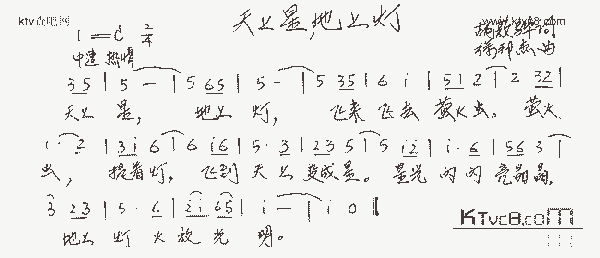 ktv点吧网
天上星，地上灯
1=C 2/4
中速 热情
词
曲
3 5 | 5 - | 5 6 5 | 5 - | 5 3 5 | 6 i | 5 1 2 | 2 3 2 |
天上 星， 地上 灯， 飞来 飞去 萤火虫。 萤火
1· 2 | 3 i 6 | 6 i 6 | 5· 3 | 2 3 5 | 5 i 2 | i· 6 | 5 6 3 |
虫， 提着灯， 飞到 天上 变成星。 星光 闪闪 亮晶晶，
3 2 3 | 5· 6 | 2 i 6 5 | i - | i 0 ‖
地上 灯火 放光 明。
KTvc8.com